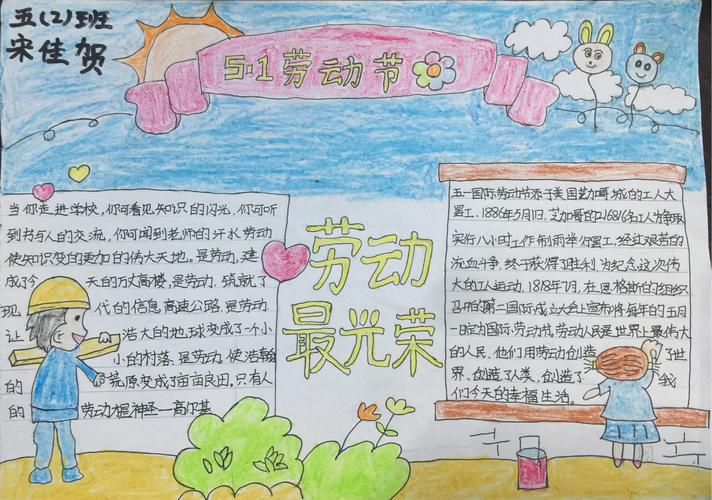 五(2)班
宋佳贺
5·1劳动节
当你走进学校,你可看见知识的闪光,你可听
到书与人的交流,你可闻到老师的汗水劳动
使知识变的更加的伟大天地。是劳动,建
成了今天的万丈高楼,是劳动,筑就了
现代的信息高速公路,是劳动,
让浩大的地球变成了一个小
小的村落,是劳动,使浩翰
的荒原变成了亩亩良田。只有人
的劳动才是神圣—高尔基
劳动
最光荣
五一国际劳动节源于美国芝加哥城的工人大
罢工,1886年5月1日,芝加哥的21.6816名工人为争取
实行八小时工作制而举行罢工,经过艰苦的
流血斗争,终于获得了胜利,为纪念这次伟
大的工人运动,1889年7月,在恩格斯的组织
召开的第二国际成立大会上宣布将每年的五月
一日定为国际劳动节,劳动人民是世界上最伟大
的人民,他们用劳动创造了世
界,创造了人类,创造了我
们今天的幸福生活。